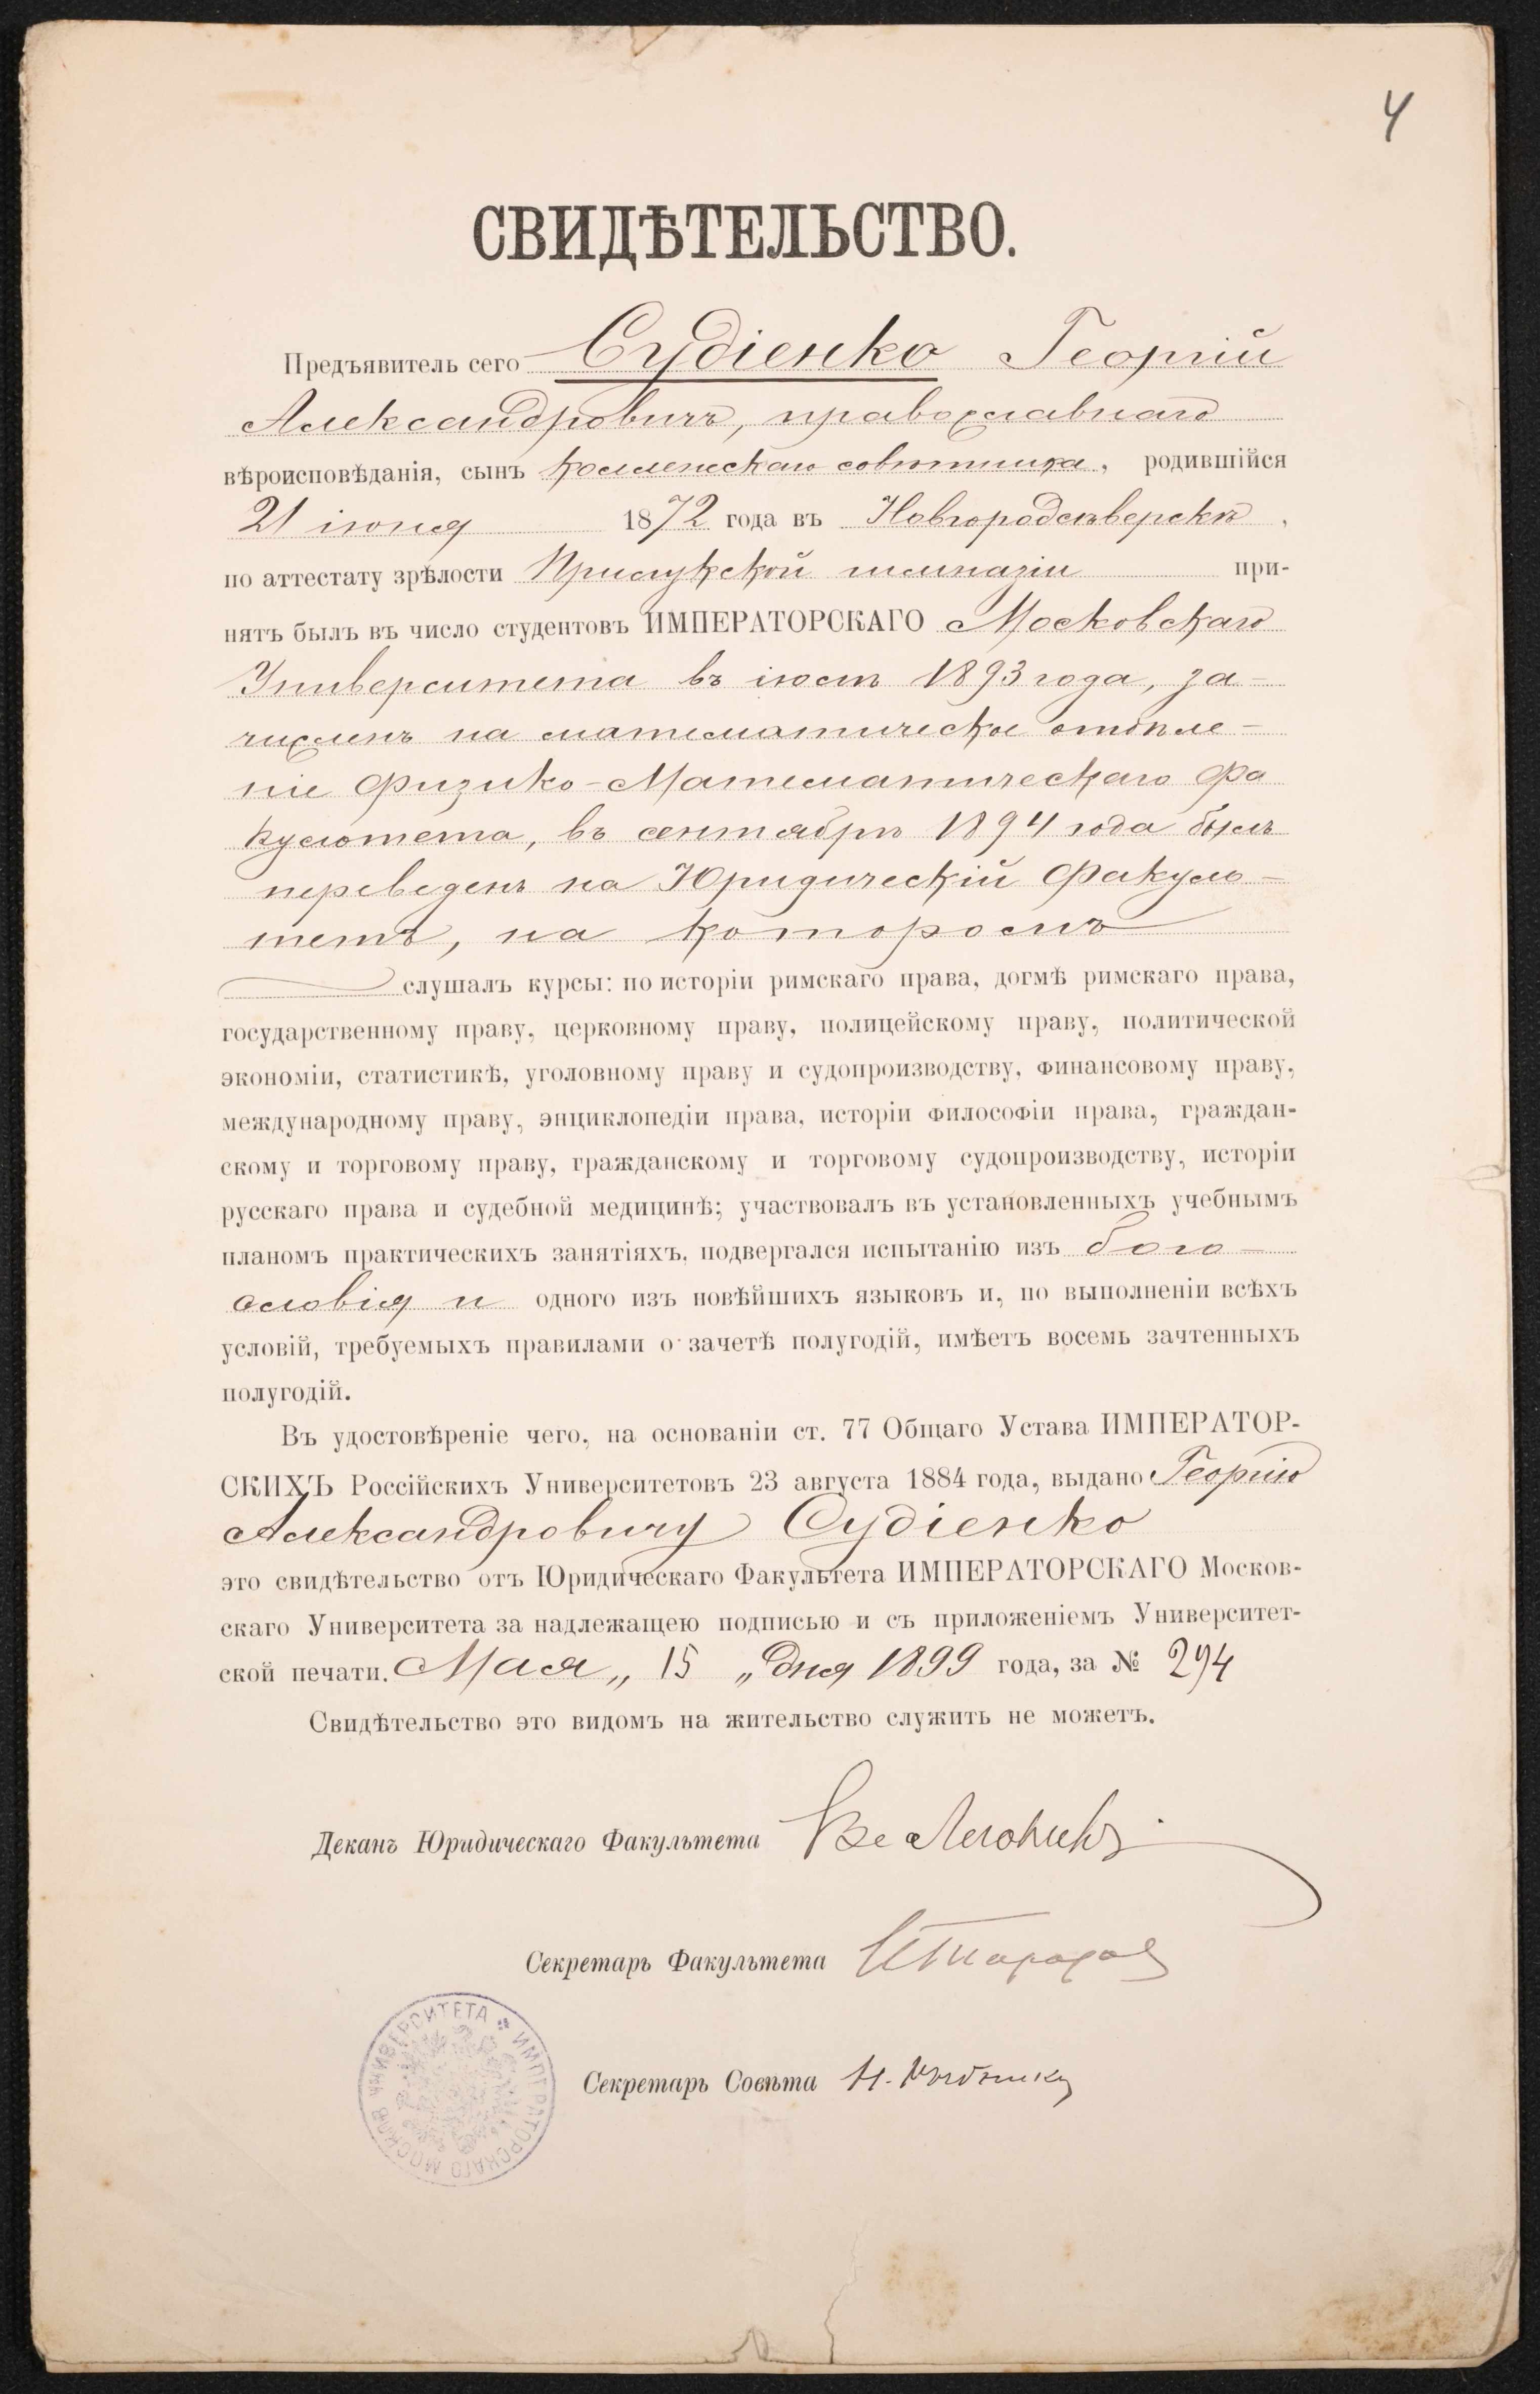 4
СВИДѢТЕЛЬСТВО.
Предъявитель сего Судіенко Георгій
Александровичъ, православнаго
вѣроисповѣданія, сынъ коллежскаго совѣтника, родившійся
21 іюня 1872 года въ Новгородсѣверскѣ,
по аттестату зрѣлости Прилукской гимназіи при-
нятъ былъ въ число студентовъ ИМПЕРАТОРСКАГО Московскаго
Университета въ іюлѣ 1893 года, за-
численъ на математическое отдѣле-
ніе Физико-Математическаго Фа
культета, въ сентябрѣ 1894 года былъ
переведенъ на Юридическій Факуль-
тетъ, на которомъ
слушалъ курсы: по исторіи римскаго права, догмѣ римскаго права,
государственному праву, церковному праву, полицейскому праву, политической
экономіи, статистикѣ, уголовному праву и судопроизводству, финансовому праву,
международному праву, энциклопедіи права, исторіи философіи права, граждан-
скому и торговому праву, гражданскому и торговому судопроизводству, исторіи
русскаго права и судебной медицинѣ; участвовалъ въ установленныхъ учебнымъ
планомъ практическихъ занятіяхъ, подвергался испытанію изъ бого-
словія и одного изъ новѣйшихъ языковъ и, по выполненіи всѣхъ
условій, требуемыхъ правилами о зачетѣ полугодій, имѣетъ восемь зачтенныхъ
полугодій.
Въ удостовѣреніе чего, на основаніи ст. 77 Общаго Устава ИМПЕРАТОР-
СКИХЪ Россійскихъ Университетовъ 23 августа 1884 года, выдано Георгію
Александровичу Судіенко
это свидѣтельство отъ Юридическаго Факультета ИМПЕРАТОРСКАГО Москов-
скаго Университета за надлежащею подписью и съ приложеніемъ Университет-
ской печати. Мая „ 15 „ дня 1899 года, за № 294
Свидѣтельство это видомъ на жительство служить не можетъ.
Деканъ Юридическаго Факультета
Секретарь Факультета
Секретарь Совѣта
УНИВЕРСИТЕТА * ИМПЕРАТОРСКАГО МОСКОВ